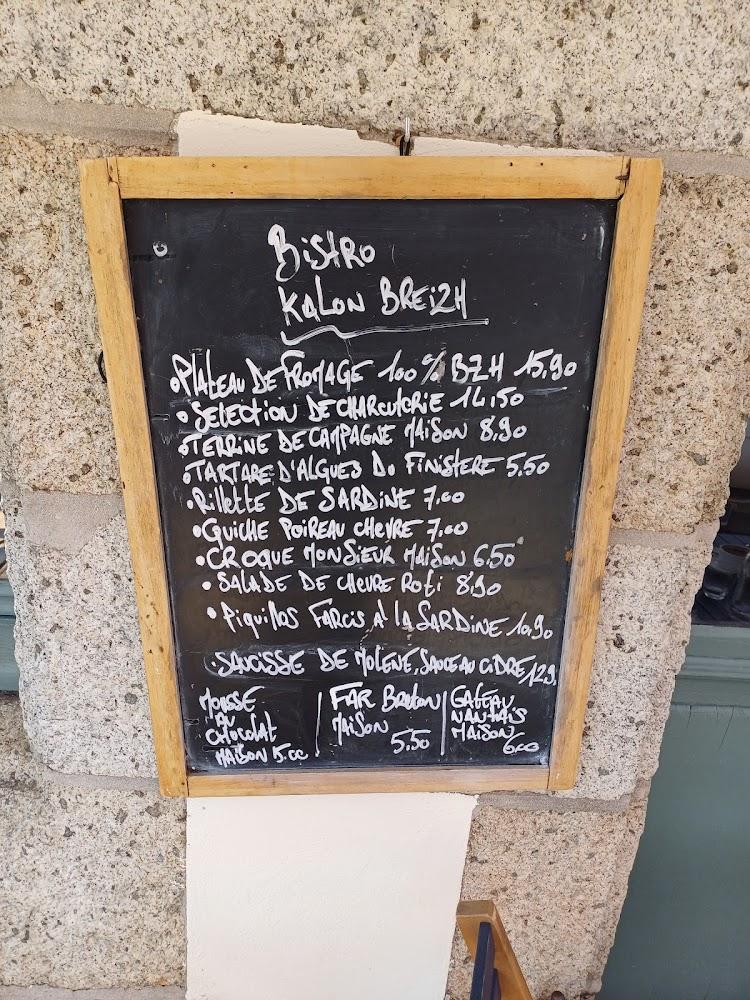 BiSTRO
KALON BREIZH
• PLATEAU DE FROMAGE 100% BZH 15,90
• SELECTION DE CHARCUTERIE 14,50
• TERRINE DE CAMPAGNE MAISON 8,90
• TARTARE D'ALGUES DU FINISTERE 5.50
• Rillette DE SARDINE 7.00
• QUICHE POIREAU CHEVRE 7.00
• CROQUE MONSIEUR MAISON 6.50
• SALADE DE CHEVRE Roti 8,90
• Piquillos FARCIS A LA SARDINE 10,90
• SAUCISSE DE MOLENE, SAUCE AU CIDRE, 12,9
MOUSSE
AU
CHOCOLAT
MAISON 5.00
FAR BRETON
MAISON
5.50
GATEAU
NANTAIS
MAISON
6.00